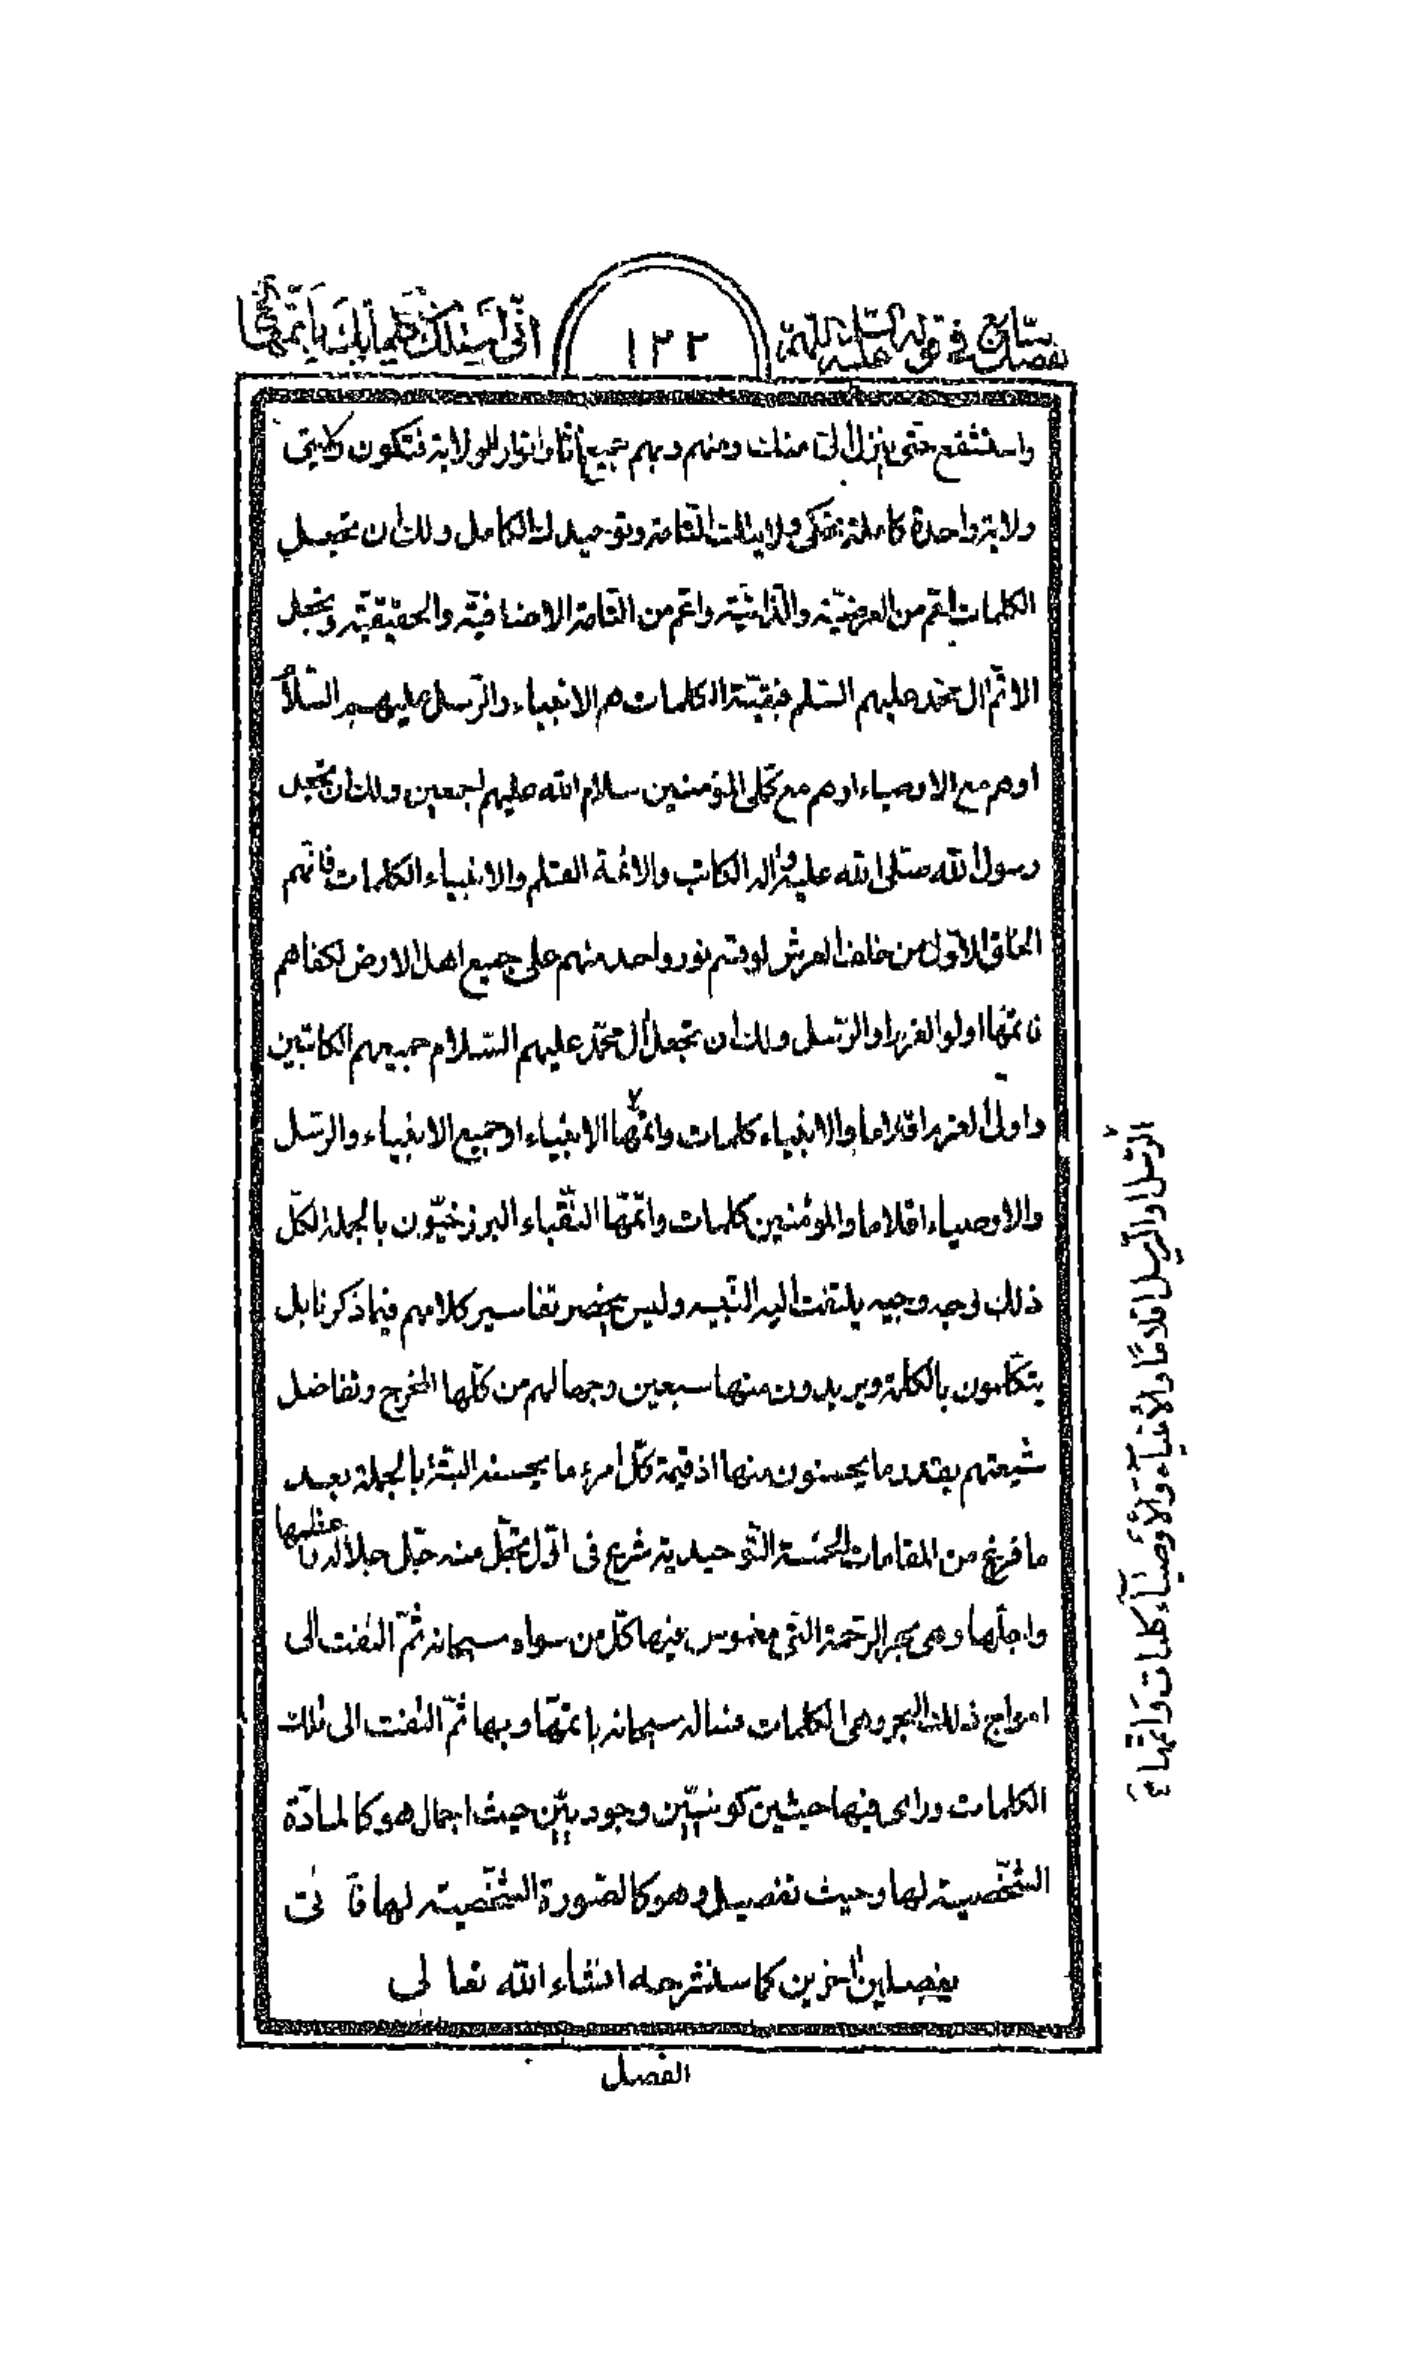 فصل سابع في قوله عليه السلام اللهم
١٢٢
انّى اسئلك من كلماتك باتمّها الخ
واستشفع حتى ينزل الىّ منك ومنهم وبهم جميع اثار انوار الولاية فتكون ولايتى
ولاية واحدة كاملة تحكى ولايتك التّامة وتوحيدك الكامل ولك ان تجعل
الكلمات اعّم من العرضيّة والذاتيّة واعّم من التّامة الاضافيّة والحقيقيّة وتجعل
الاتّم ال محمّد عليهم السّلم فبقيّة الكلمات هم الانبياء والرّسل عليهم السّلام
اوهم مع الاوصياء اوهم مع كمّلى المؤمنين سلام الله عليهم اجمعين ولك ان تجعل
رسول الله صلّى الله عليه واله الكاتب والائمة القلم والانبياء الكلمات فانّهم
الخلق الاوّل من خلف العرش لو قسم نور واحد منهم على جميع اهل الارض لكفاهم
فاتمّها اولوا العزم او الرّسل ولك ان تجعل ال محمّد عليهم السّلام جميعهم الكاتبين
واولى العزم اقلاما والانبياء كلمات واتمّها الانبياء او جميع الانبياء والرّسل
والاوصياء اقلاما والمؤمنين كلمات واتمّها النّقباء البرزخيّون بالجملة الكلّ
ذلك وجه وجيه يلتفت اليه النّبيه وليس يحضر تفاسير كلامهم فيما ذكرنا بل
يتكلّمون بالكلمة ويريدون منها سبعين وجها لهم من كلّها المخرج وتفاضل
شيعتهم بقدر ما يحسنون منها اذ قيمة كلّ امرء ما يحسنه البتّة بالجملة بعد
ما فرغ من المقامات الخمسة التّوحيدية شرع فى اوّل تجلّ منه جلّ جلاله باعظمها
واجلّها وهى بحر الرّحمة التّى مغموس فيها كلّ من سواه سبحانه ثمّ التفت الى
امواج ذلك البحر وهى الكلمات فساله سبحانه باتمّها وبها ثمّ التفت الى تلك
الكلمات وراى فيها حيثين كونيّين وجوديّين حيث اجمال هو كالمادّة
الشّخصية لها وحيث تفصيل وهو كالصّورة الشّخصيّة لها فاتى
بفصلين اخرين كما سنشرحه انشاء الله تعالى
الفصل
الرّسل او الرّسل اقلامًا والأنبيآء والأوصيآء كلمات واتمّها